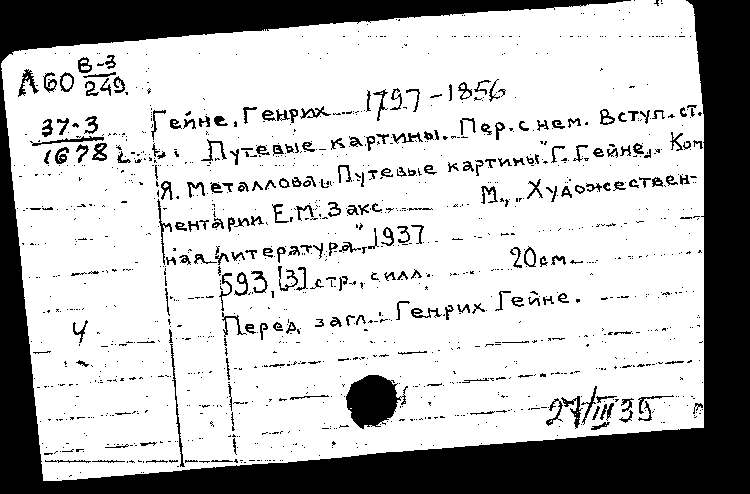 Л60 В-3/249
37-3/1678
Гейне, Генрих 1797-1856
Путевые картины. Пер. с нем. Вступ. ст.
Я. Металлова „Путевые картины" Г. Гейне„. Ком
ментарии Е.М. Закс. М., „Художествен-
ная литература", 1937
593, [3] стр., с илл. 20 см.
4
Перед загл.: Генрих Гейне.
27/III 39